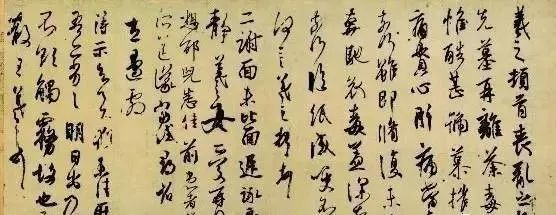 羲之頓首喪亂之
先墓再離荼毒
惟酷甚號慕摧
痛貫心肝痛當
奈何雖即脩復未
奔馳哀毒益深
奈何臨紙感哽
何言羲之頓首
二謝面未比面遲詠
靜羲之女愛再
想邵兒悉佳前患者
所送議當試尋
左邊劇
得示知足下猶未佳
吾亦劣劣明日出乃
不欲觸霧故也
散王羲之頓